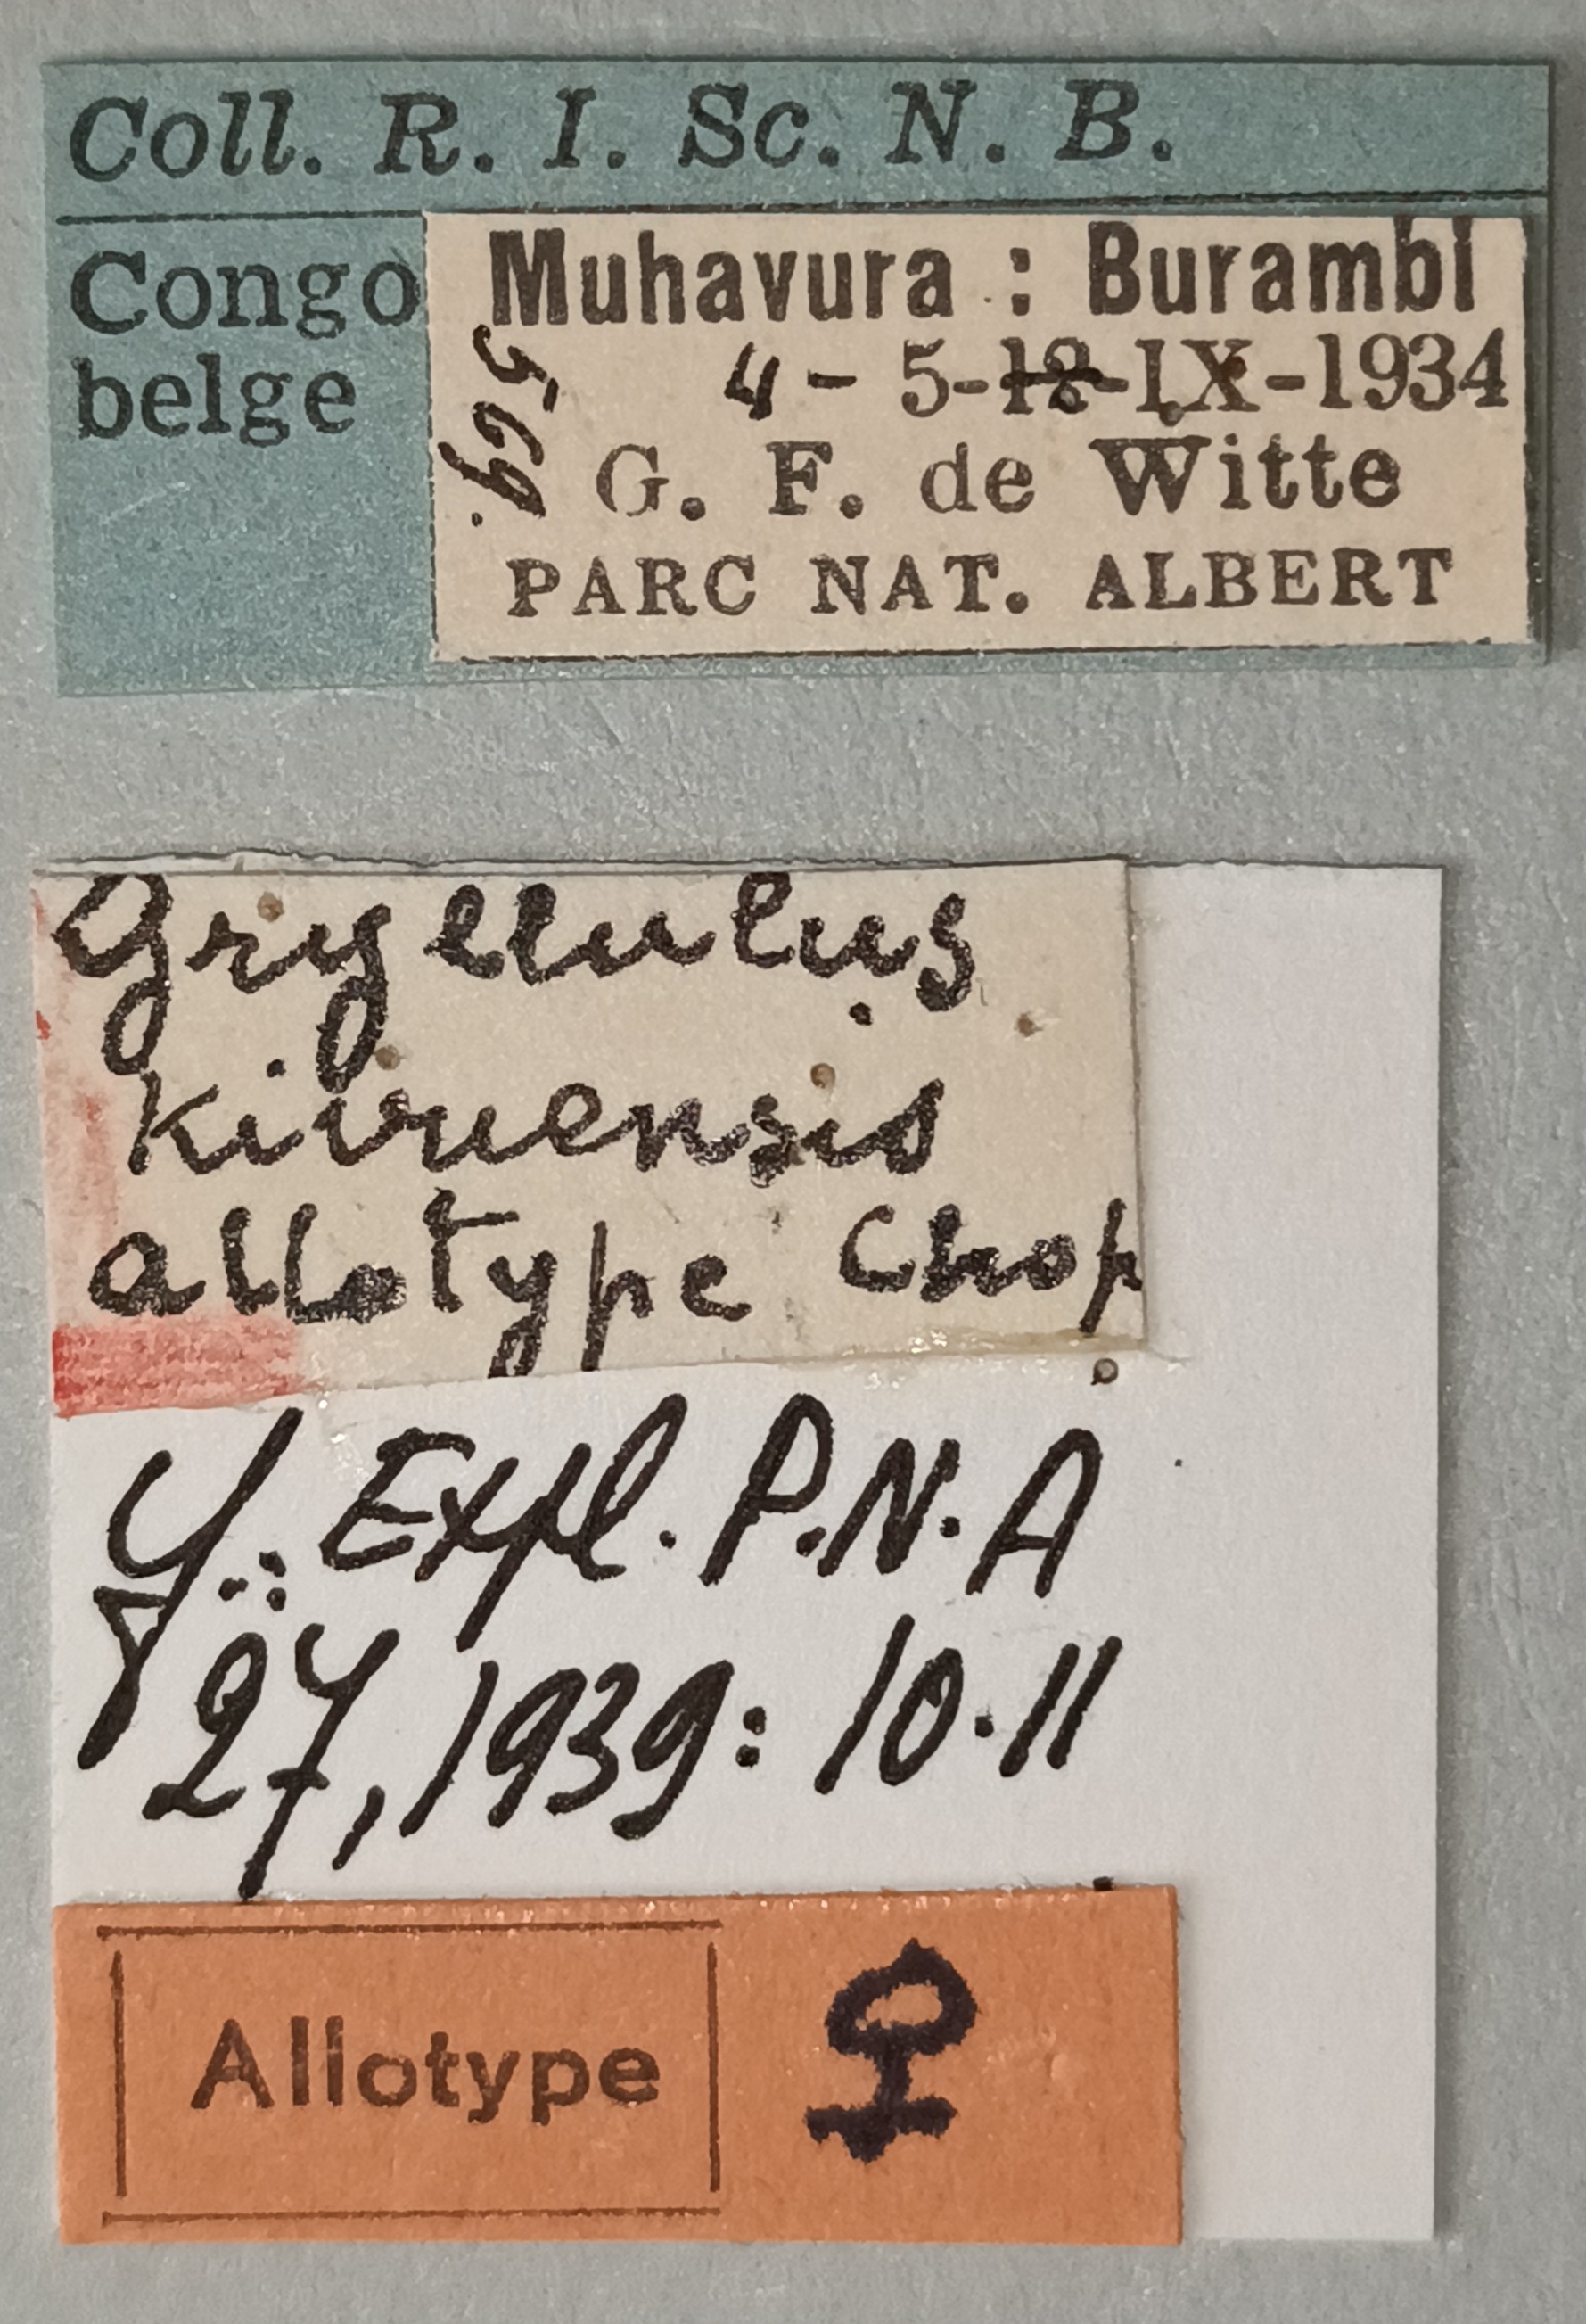 Coll. R. I. Sc. N. B.
Congo
belge
Muhavura : Burambi
4 - 5-18-IX-1934
G. F. de Witte
PARC NAT. ALBERT
Gryllulus
kivuensis
allotype Chop
Expl. P.N.A
27, 1939: 10-11
Allotype ♀